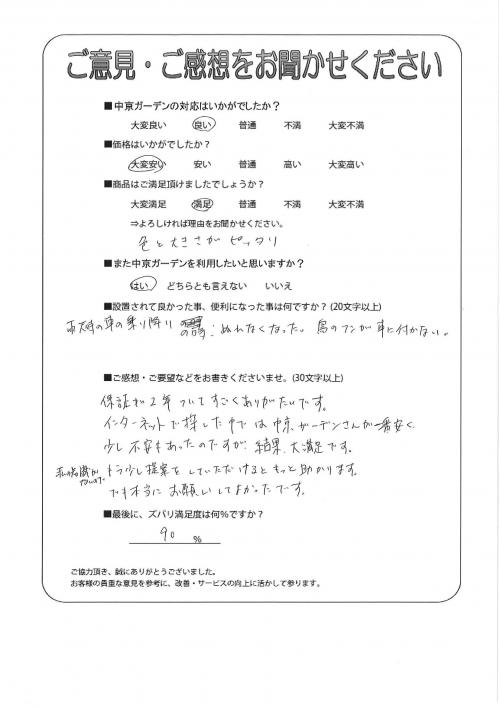 ご意見・ご感想をお聞かせください
■中京ガーデンの対応はいかがでしたか？
大変良い 良い 普通 不満 大変不満
■価格はいかがでしたか？
大変安い 安い 普通 高い 大変高い
■商品はご満足頂けましたでしょうか？
大変満足 満足 普通 不満 大変不満
⇒よろしければ理由をお聞かせください。
色と大きさがピッタリ
■また中京ガーデンを利用したいと思いますか？
はい どちらとも言えない いいえ
■設置されて良かった事、便利になった事は何ですか？(20文字以上)
雨天時の車の乗り降り の際、ぬれなくなった。鳥のフンが車に付かない。
■ご感想・ご要望などをお書きくださいませ。(30文字以上)
保証が2年ついてすごくありがたいです。
インターネットで探した中では中京ガーデンさんが一番安く
少し不安もあったのですが、結果、大満足です。
もう少し提案をしていただけるともっと助かります。
でも本当にお願いしてよかったです。
■最後に、ズバリ満足度は何％ですか？
90 ％
ご協力頂き、誠にありがとうございました。
お客様の貴重な意見を参考に、改善・サービスの向上に活かして参ります。